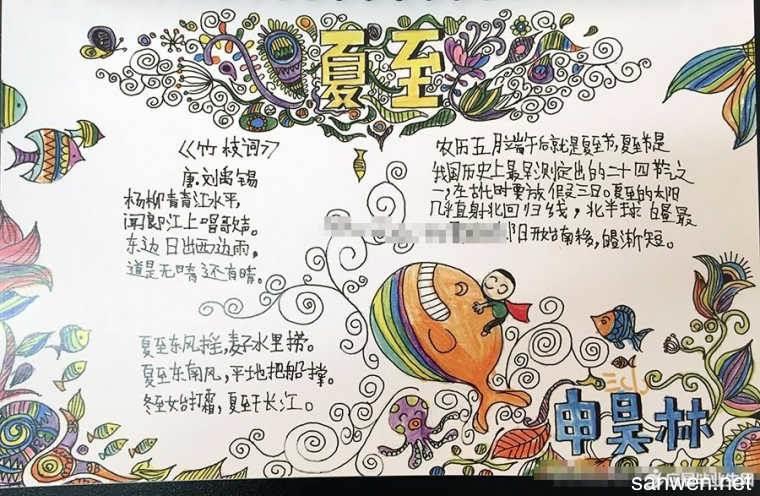 夏至
《竹枝词》
唐.刘禹锡
杨柳青青江水平,
闻郎江上唱歌声。
东边日出西边雨,
道是无晴还有晴。
农历五月端午后就是夏至节,夏至节是
我国历史上最早测定出的二十四节之
一,在古时要放假三日。夏至的太阳
几直射北回归线,北半球白昼最
阳开始南移,白昼渐短。
夏至东风摇,麦子水里捞。
夏至东南风,平地把船撑。
冬至始打霜,夏至干长江。
申昊林
sanwen.net